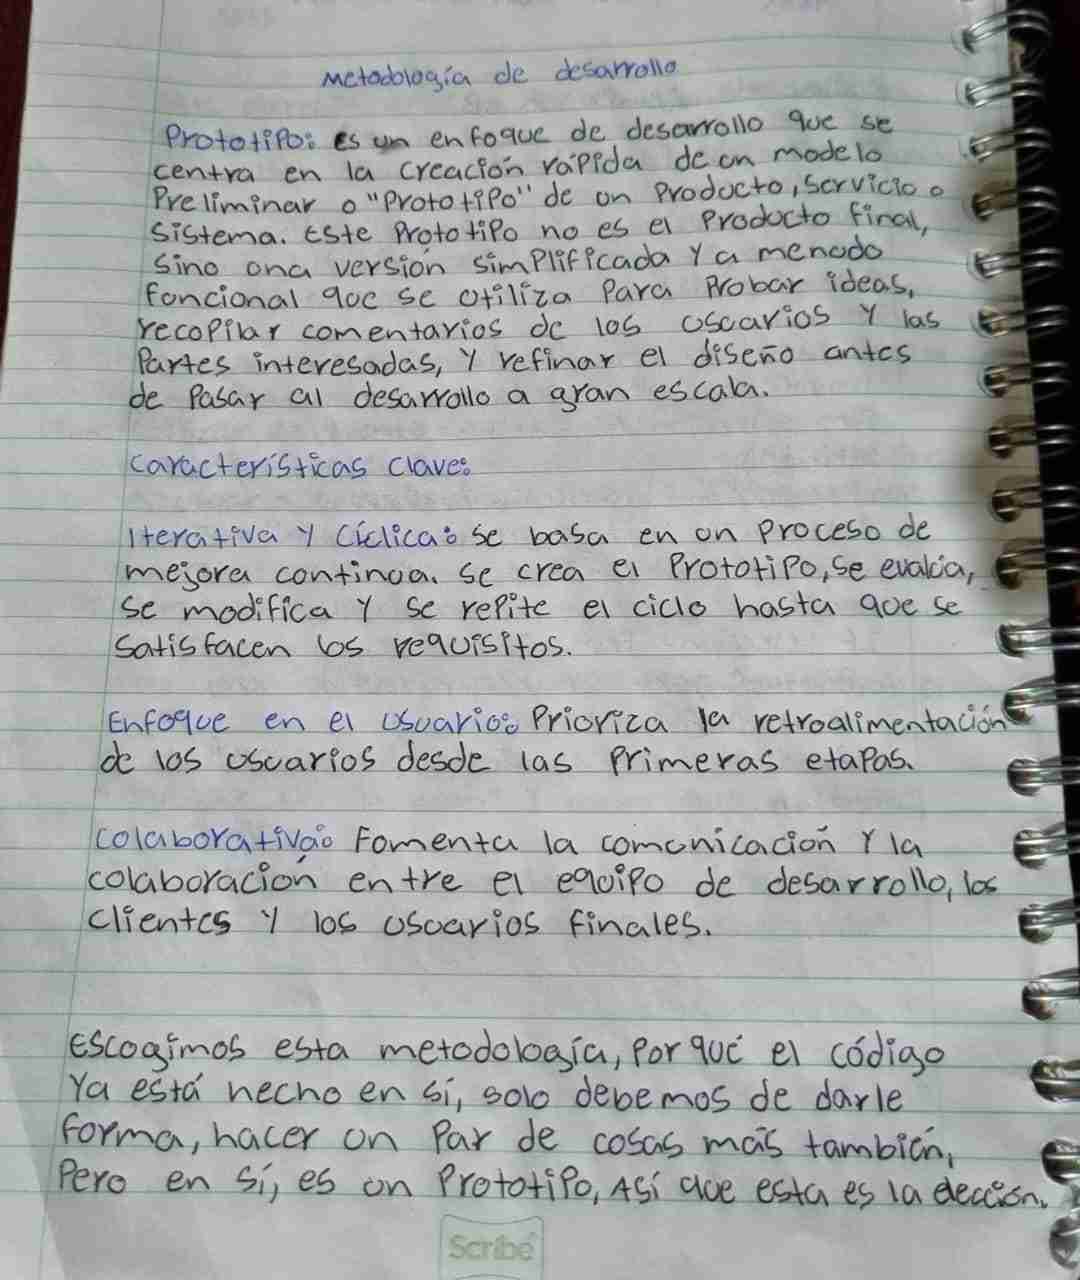 Metodología de desarrollo
Prototipo: Es un enfoque de desarrollo que se
centra en la creación rápida de un modelo
Preliminar o "Prototipo" de un Producto, servicio o
sistema. Este Prototipo no es el Producto final,
sino una versión simplificada y a menudo
funcional que se utiliza para probar ideas,
recopilar comentarios de los usuarios y las
Partes interesadas, y refinar el diseño antes
de pasar al desarrollo a gran escala.
Características clave:
Iterativa y Cíclica: se basa en un proceso de
mejora continua. Se crea el Prototipo, se evalúa,
se modifica y se repite el ciclo hasta que se
satisfacen los requisitos.
Enfoque en el usuario: Prioriza la retroalimentación
de los usuarios desde las primeras etapas.
Colaborativa: Fomenta la comunicación y la
colaboración entre el equipo de desarrollo, los
clientes y los usuarios finales.
Escogimos esta metodología, por qué el código
Ya está hecho en sí, solo debemos de darle
forma, hacer un par de cosas más también,
Pero en sí, es un Prototipo, Así que esta es la elección.
Scribe